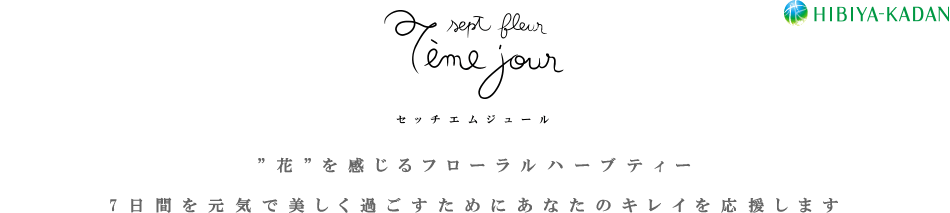 HIBIYA-KADAN
sept fleur
7ème jour
セッチエムジュール
”花”を感じるフローラルハーブティー
7日間を元気で美しく過ごすためにあなたのキレイを応援します